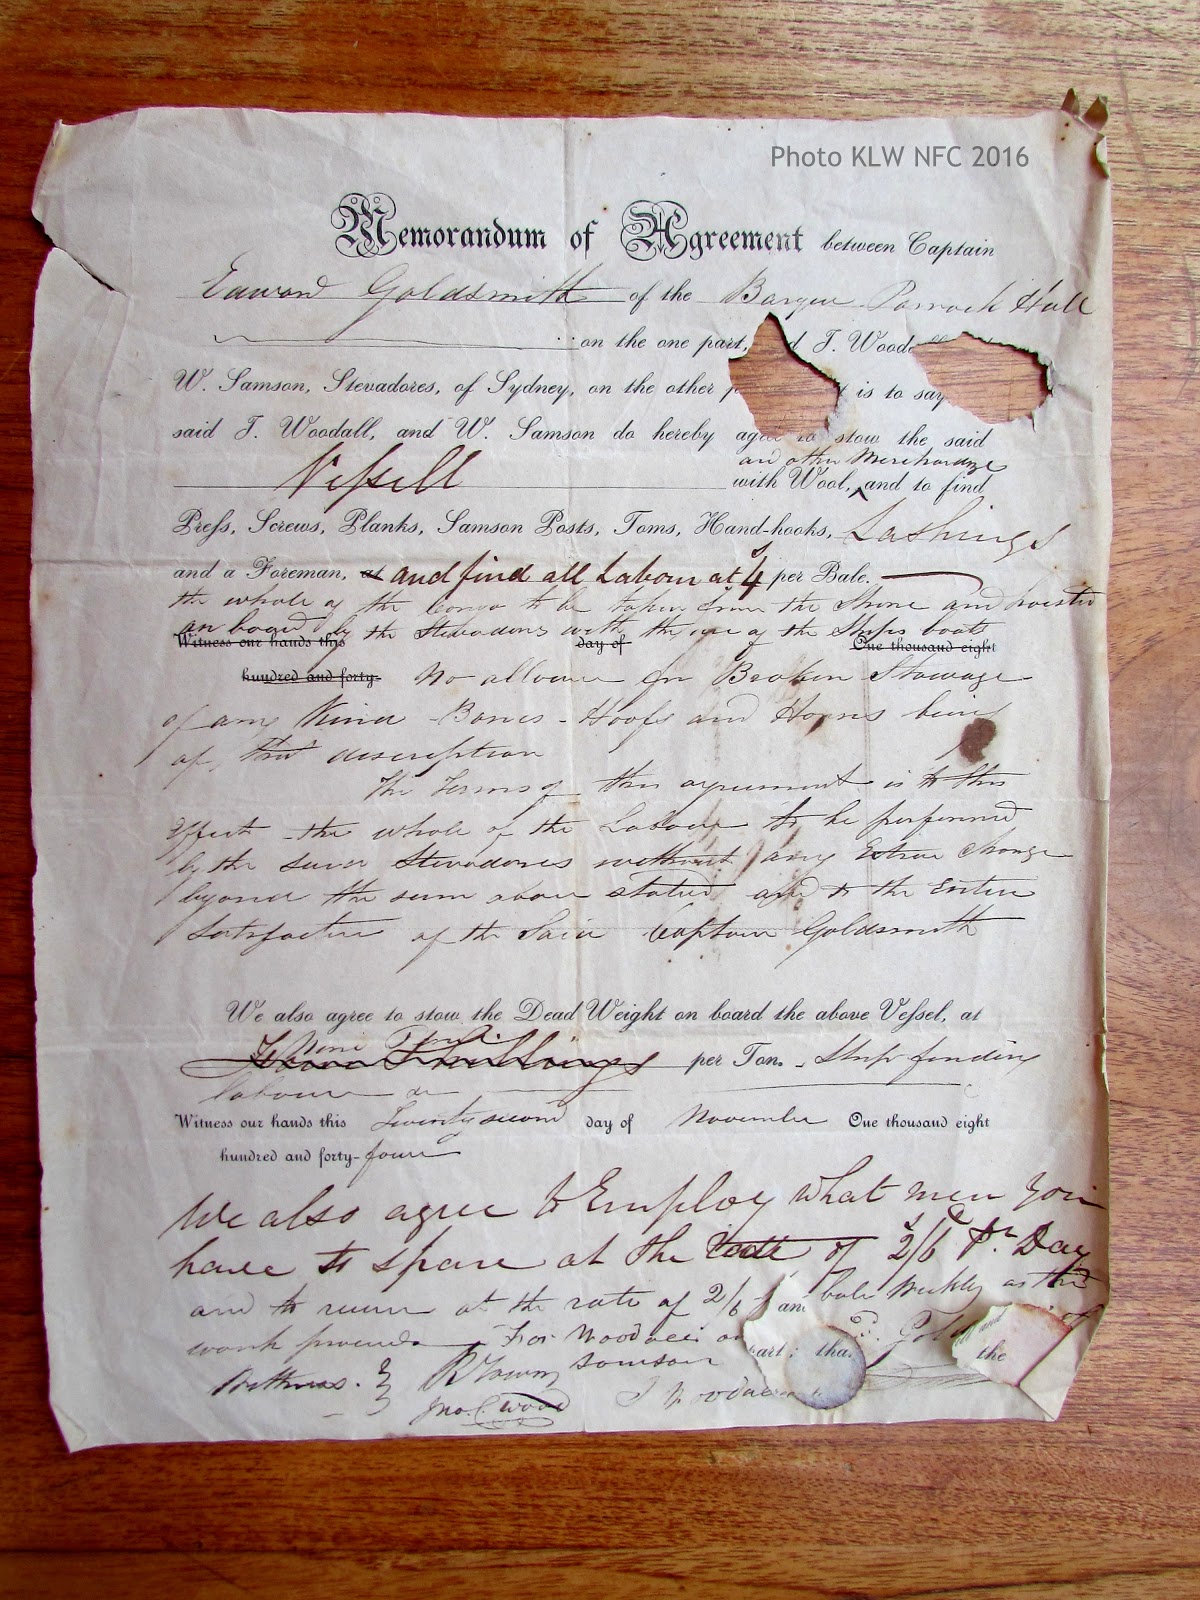 Photo KLW NFC 2016
Memorandum of Agreement between Captain
Edward Goldsmith of the Barque Parrock Hall
on the one part, d T. Wood
W. Samson, Stevadores, of Sydney, on the other p is to say
said T. Woodall, and W. Samson do hereby agree to stow the said
and other Merchandize
Vessell with Wool, and to find
Press, Screws, Planks, Samson Posts, Toms, Hand-hooks, Lashings
and a Foreman, at and find all Labour at 4 per Bale.
the whole of the Cargo to be taken from the Shore and hoisted
on board by the Stevadores with the use of the Ships boats
Witness our hands this day of One thousand eight
hundred and forty- No allowance for Broken Stowage
of any Kind - Bones - Hoofs and Horns being
of that description
The Terms of this agreement is to this
Effect the whole of the Labour to be performed
by the said Stevadores without any Extra Charge
beyond the sum above stated and to the Entire
Satisfaction of the Said Captain Goldsmith
We also agree to stow the Dead Weight on board the above Vessel, at
Nine
Shillings per Ton. - Ship finding
labour
Witness our hands this Twenty second day of November One thousand eight
hundred and forty-four
We also agree to Employ what men you
have to spare at the rate of 2/6 Pr. Day
and to receive at the rate of 2/6 bale Weekly as the
work proceeds For Woodall
Samson
Witness. Jno. C. Wood
T Woodall
and
part; tha
the